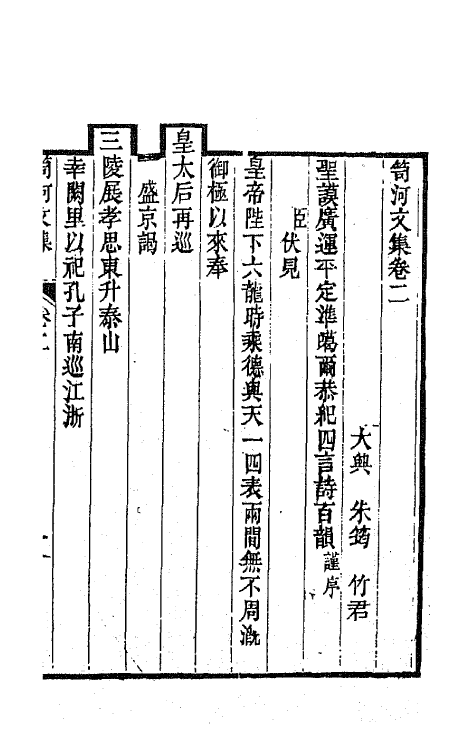 笥河文集卷二
大興 朱筠 竹君
聖謨廣運平定準噶爾恭紀四言詩百韻謹序
臣伏見
皇帝陛下六龍時乘德與天一四表兩間無不周溉
御極以來奉
皇太后再巡
盛京謁
三陵展孝思東升泰山
幸闕里以祀孔子南巡江浙
笥河文集 卷二 一